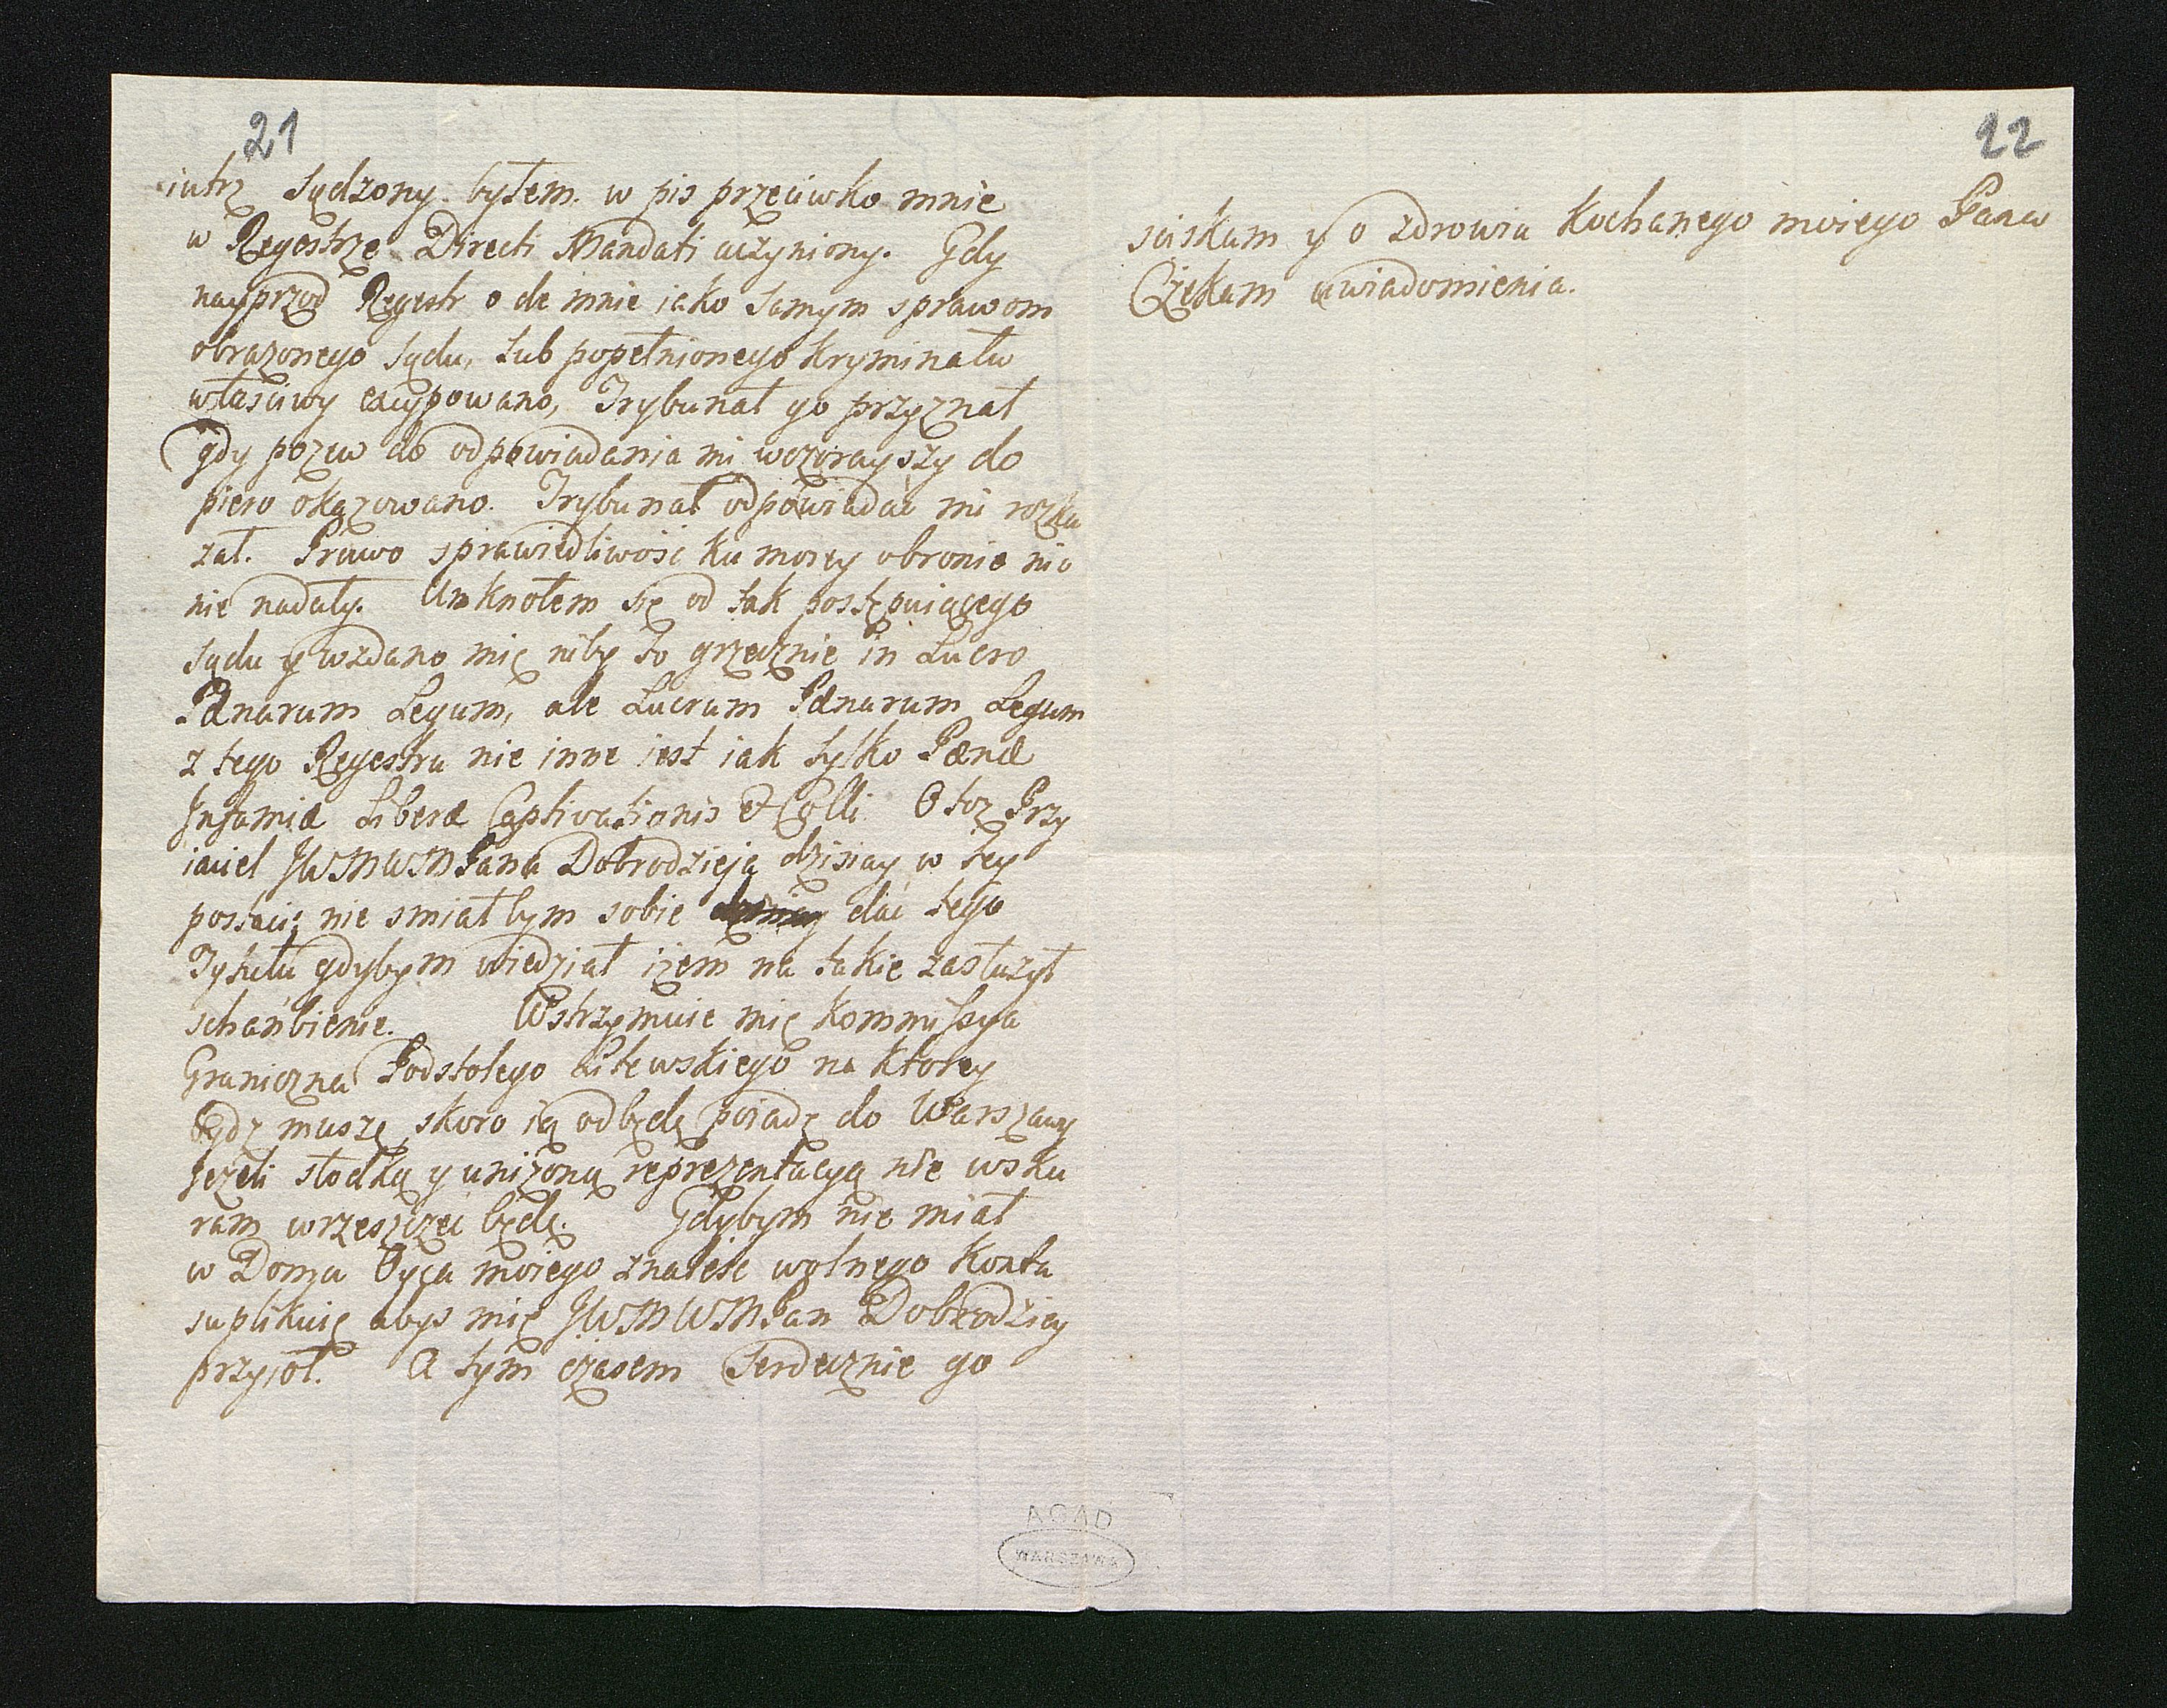 21
iutrz sądzony byłem. w pis przeciwko mnie
w Regestrze Directi Mandati uczyniony. Gdy
nayprzod Regestr o de mnie iako samym sprawom
obrazonego sądu, lub popełnionego kryminału
właściwy excypowano, Trybunał go przyznał
gdy pozew do odpowiadania mi wczorayszy do
piero okazowano. Trybunał odpowiadać mi rozka
zał. Prawo sprawiedliwość ku moiey obronie nic
nie nadały. Umknołem się od tak postępuiącego
sądu y wzdano mię niby to grzecznie in Lucro
Pænarum Legum, ale Lucrum Pænarum Legum
z tego Regestru nie inne iest iak tylko Pænæ
Infamiæ Liberæ Captivationis & Colli O toz Przy
iaciel JWMWMPana Dobrodzieja dzisiay w tey
postaci; nie smiał bym sobie dać tego
Tytułu gdybym wiedział iżem na takie zasłużył
schańbienie. Wstrzymuie mię Kommissya
Graniczna Podstolego Litewskiego na Ktorey
bydz muszę, skoro ią odbędę poiadę do Warszawy
Jezeli słodką y unizoną reprezentacyą nie wsku
ram wrzeszczeć będę. Gdybym nie miał
w Domu Oyca moiego znaleść wolnego Konta
suplikuię abys mię JWMWMPan Dobrodziey
przyioł. A tym czasem Serdecznie go
AGAD
WARSZAWA
22
sciskam y o zdrowiu Kochanego moiego Pana
Czekam uwiadomienia.